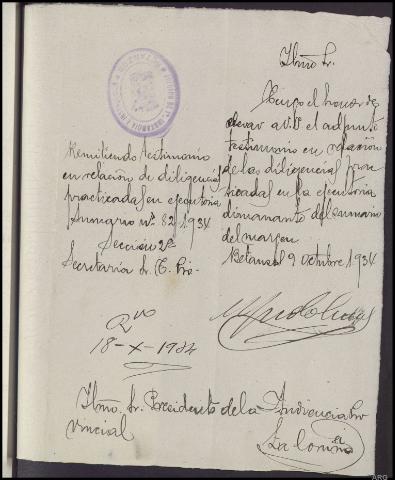 Remitiendo testimonio
en relación de diligencias
practicadas en ejecutoria
sumario nº 82-1934
Sección 2ª
Secretaría Sr. T.
Ilmo Sr.
Tengo el honor de
elevar a V.I. el adjunto
testimonio en relación
de las diligencias prac
ticadas en la ejecutoria
dimanante del sumario
del margen.
Betanzos 9 octubre 1934
18-X-1934
Ilmo. Sr. Presidente de la Audiencia Pro
vincial
La Coruña
ARG